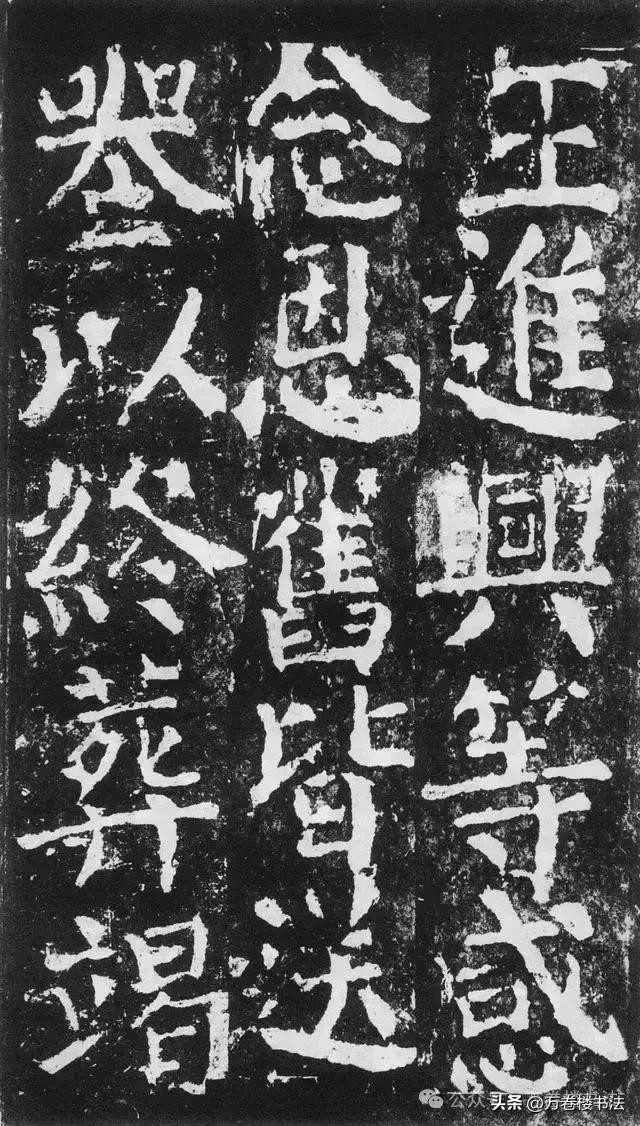 王進興等感
念恩舊皆送
喪以終葬竭
公众
头条 @万卷楼书法